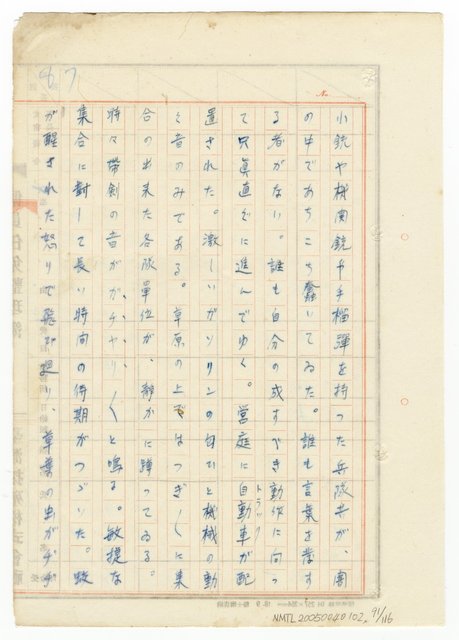 87
No.
小銃や機関銃や手榴弾を持った兵隊達が、闇
の中であちこち蠢いてゐた。誰も言葉を発す
る者がない。誰も自分の成すべき動作に向っ
て只真直ぐに進んでゆく。営庭に自動車が配
トラック
置された。激しいガソリンの匂ひと機械の動
く音のみである。草原の上ではつぎ〱に集
合の出来た各隊單位が、静かに蹲ってゐる。
時々帯剣の音がガチヤリ〱と鳴る。敏捷な
集合に対して長い時間の待期がつゞいた。蚊
が醒された怒りで飛び廻り、草葉の虫がヂヂ
NMTL20050040102 91/116